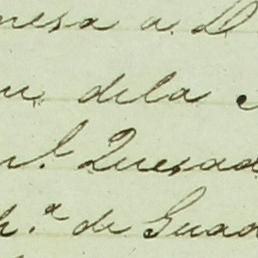 mesa a D
dela
n.l Quesad
h.a de Guad